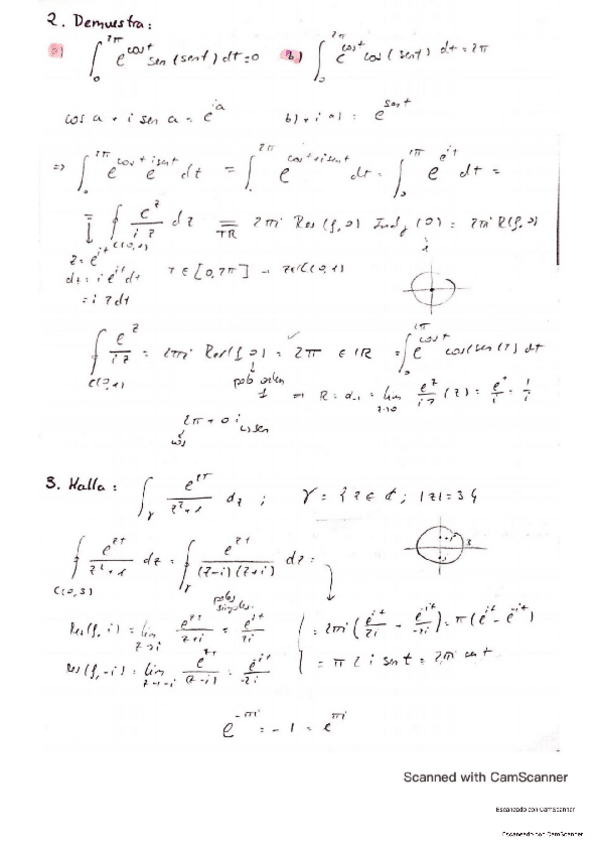 2. Demuestra:
a) ∫₀^{2π} e^{cos t} sen (sen t) dt = 0   b) ∫₀^{2π} e^{cos t} cos (sen t) dt = 2π
cos a + i sen a = e^{ia}   b) + i a) = e^{sen t}
⇒ ∫₀^{2π} e^{cos t} e^{i sen t} dt = ∫₀^{2π} e^{cos t + i sen t} dt = ∫₀^{2π} e^{e^{it}} dt =
= ∮_{C(0,1)} e^z/(iz) dz =_{TR} 2πi Res(f,0) Ind_γ(0) = 2πi R(f,0)
z = e^{it}
dz = i e^{it} dt   t ∈ [0,2π] → z ∈ C(0,1)
= i z dt
∮_{C(0,1)} e^z/(iz) = 2πi Res(f,0) = 2π ∈ ℝ = ∫₀^{2π} e^{cos t} cos(sen t) dt
polo orden 1 ⇒ R = d₋₁ = lim_{z→0} e^z/(iz) (z) = e^0/i = 1/i
2π + 0i
cos   sen
3. Halla: ∫_γ e^{zt}/(z²+1) dz ; γ = {z ∈ ℂ ; |z| = 3}
∮_{C(0,3)} e^{zt}/(z²+1) dz = ∫_γ e^{zt}/((z-i)(z+i)) dz =
polos simples
Res(f,i) = lim_{z→i} e^{zt}/(z+i) = e^{it}/2i   = 2πi (e^{it}/2i + e^{-it}/-2i) = π(e^{it} - e^{-it})
Res(f,-i) = lim_{z→-i} e^{zt}/(z-i) = e^{-it}/-2i   = π 2i sen t = 2πi sen t
e^{-πi} = -1 = e^{πi}
Scanned with CamScanner
Escaneado con CamScanner
Escaneado con CamScanner